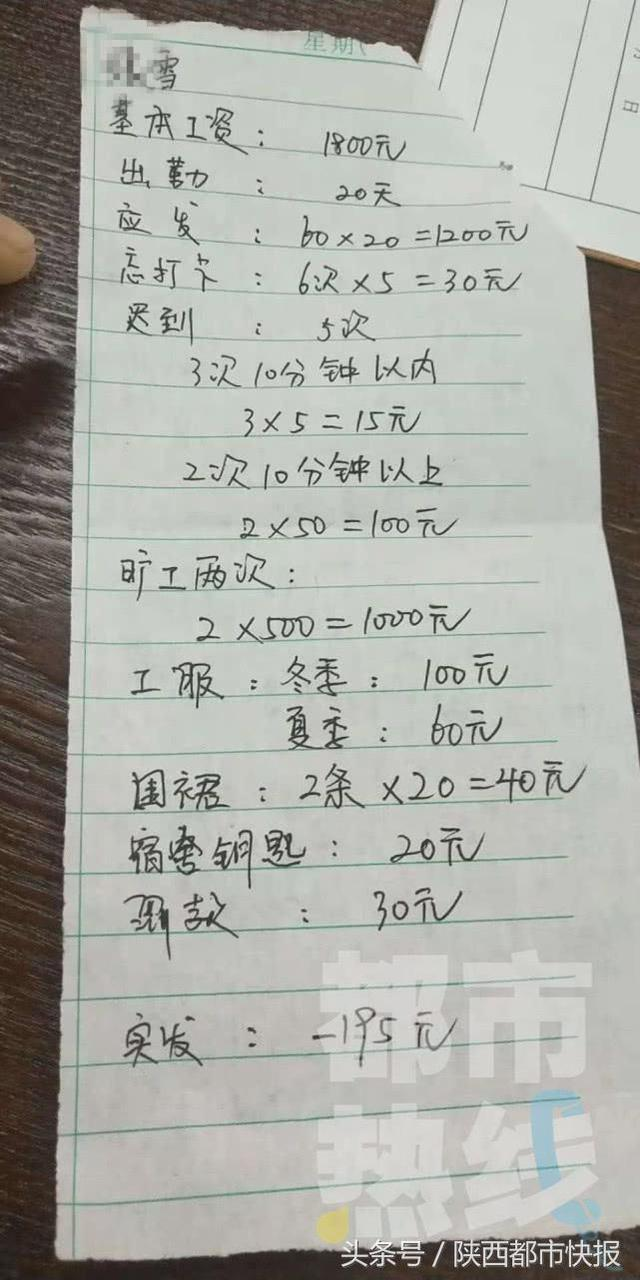 星期
雪
基本工资： 1800元
出勤： 20天
应发： 60×20=1200元
忘打卡： 6次×5=30元
迟到： 5次
3次10分钟以内
3×5=15元
2次10分钟以上
2×50=100元
旷工两次：
2×500=1000元
工服：冬季： 100元
夏季： 60元
围裙： 2条×20=40元
宿舍钥匙： 20元
罚款： 30元
实发： -195元
日
都市
热线
头条号/陕西都市快报